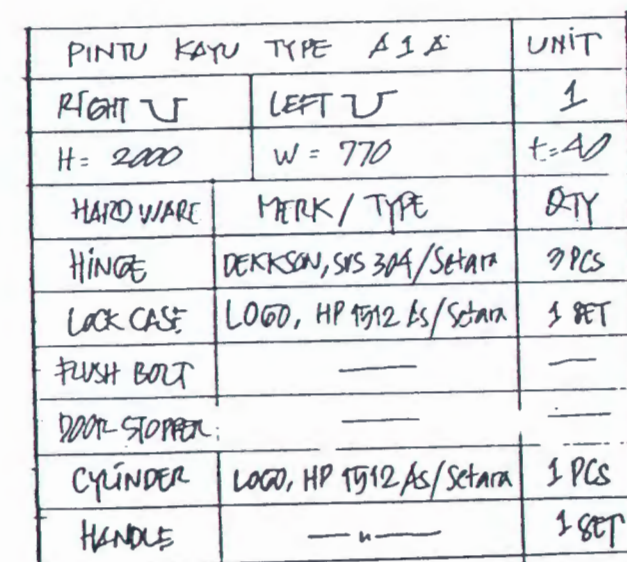 PINTU KAYU TYPE A1A UNIT
RIGHT LEFT 1
H = 2000 W = 770 t = 40
HARDWARE MERK / TYPE QTY
HINGE DEKKSON, SUS 304/Setara 3 PCS
LOCK CASE LOGO, HP 1512 As/Setara 1 SET
FLUSH BOLT — —
DOOR STOPPER — —
CYLINDER LOGO, HP 1512 As/Setara 1 PCS
HANDLE —〃— 1 SET